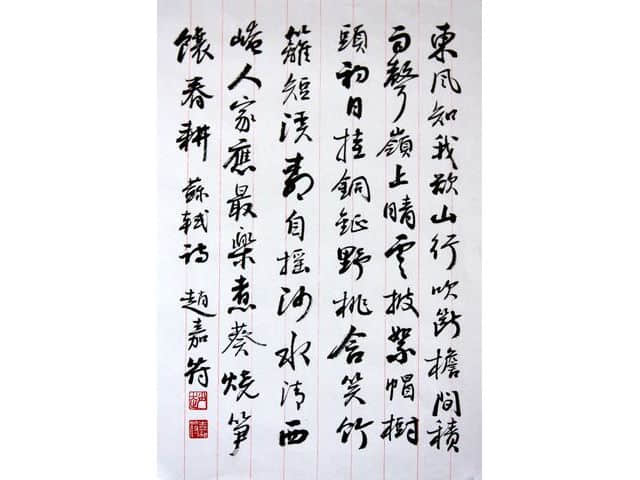 東風知我欲山行吹斷檐間積
雨聲嶺上晴雲披絮帽樹
頭初日挂銅鉦野桃含笑竹
籬短溪柳自摇沙水清西
崦人家應最樂煮葵燒笋
饟春耕 蘇軾詩 趙嘉符